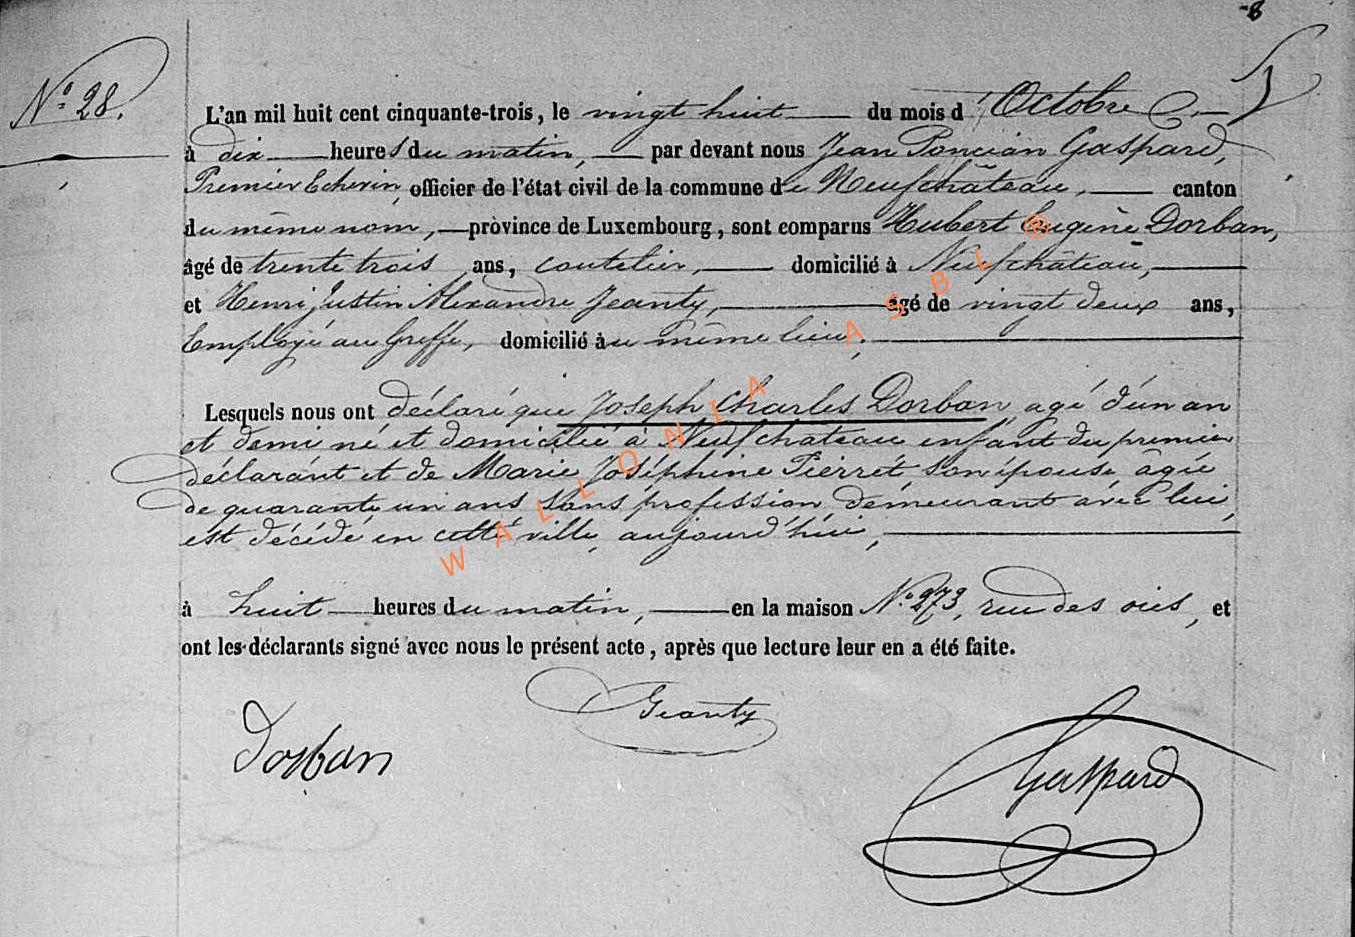 8
N° 28.
L'an mil huit cent cinquante-trois, le vingt huit du mois d'Octobre
à dix heures du matin, par devant nous Jean Poncian Gaspard,
Premier Echevin, officier de l'état civil de la commune de Neufchâteau, canton
du même nom, province de Luxembourg, sont comparus Hubert Eugène Dorban,
âgé de trente trois ans, coutelier, domicilié à Neufchâteau,
et Henri Justin Alexandre Jeanty, âgé de vingt deux ans,
Employé au Greffe, domicilié au même lieu;
Lesquels nous ont déclaré que Joseph Charles Dorban agé d'un an
et demi né et domicilié à Neufchateau enfant du premier
déclarant et de Marie Joséphine Pierrét son épouse âgée
de quarante un ans sans profession, démeurant avec lui,
est décédé en cette ville, aujourd'hui,
à huit heures du matin, en la maison N° 273, rue des oies, et
ont les déclarants signé avec nous le présent acte, après que lecture leur en a été faite.
Dorban
Jeanty
Gaspard
WALLONIA ASBL ®